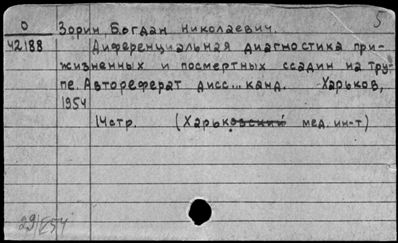 5
О Зорин, Богдан Николаевич.
42188 Диференциальная диагностика при-
жизненных и посмертных ссадин на тру-
пе. Автореферат дисс... канд. Харьков,
1954
14стр. (Харьковский мед. ин-т)